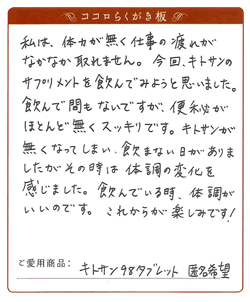 ココロらくがき板
私は、体力が無く仕事の疲れが
なかなか取れません。今回、キトサンの
サプリメントを飲んでみようと思いました。
飲んで間もないですが、便秘が
ほとんど無くスッキリです。キトサンが
無くなってしまい、飲まない日がありま
したがその時は体調の変化を
感じました。飲んでいる時、体調が
いいのです。これからが楽しみです!
ご愛用商品: キトサン98タブレット 匿名希望